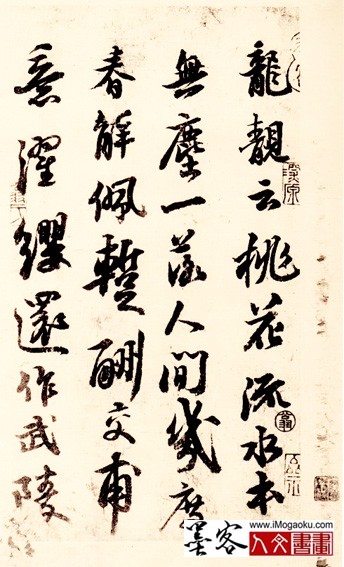 龍靚云桃花流水本
無塵一落人間幾度
春解佩暫酬交甫
意濯纓還作武陵
墨客
www.iMogaoku.com
人文書畫